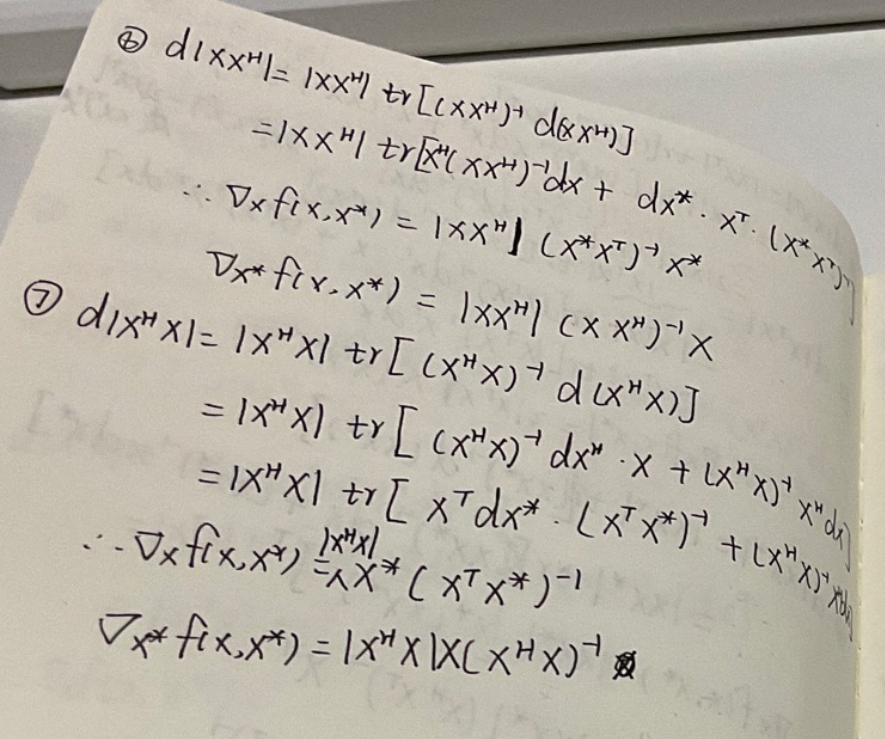 ⑥ d|XXᴴ| = |XXᴴ| tr[(XXᴴ)⁻¹ d(XXᴴ)]
= |XXᴴ| tr[Xᴴ(XXᴴ)⁻¹dX + dX* · Xᵀ · (X*Xᵀ)⁻¹]
∴ ∇x f(X,X*) = |XXᴴ| (X*Xᵀ)⁻¹ X*
∇x* f(X,X*) = |XXᴴ| (XXᴴ)⁻¹ X
⑦ d|XᴴX| = |XᴴX| tr[(XᴴX)⁻¹ d(XᴴX)]
= |XᴴX| tr[(XᴴX)⁻¹ dXᴴ · X + (XᴴX)⁻¹ XᴴdX]
= |XᴴX| tr[XᵀdX* · (XᵀX*)⁻¹ + (XᴴX)⁻¹ XᴴdX]
∴ ∇x f(X,X*) = |XᴴX| X* (XᵀX*)⁻¹
∇x* f(X,X*) = |XᴴX| X(XᴴX)⁻¹